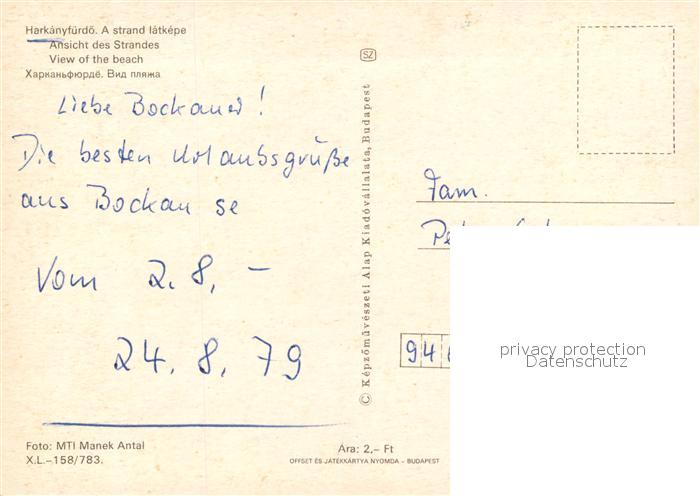 Harkányfürdő. A strand látképe
Ansicht des Strandes
View of the beach
Харканьфюрдё. Вид пляжа
Liebe Bockauer!
Die besten Urlaubsgrüße
aus Bockau se
Vom 2.8. –
24.8.79
Foto: MTI Manek Antal
X.L.–158/783.
SZ
© Képzőművészeti Alap Kiadóvállalata, Budapest
Fam.
94
privacy protection
Datenschutz
Ára: 2,– Ft
OFFSET ÉS JÁTÉKKÁRTYA NYOMDA – BUDAPEST